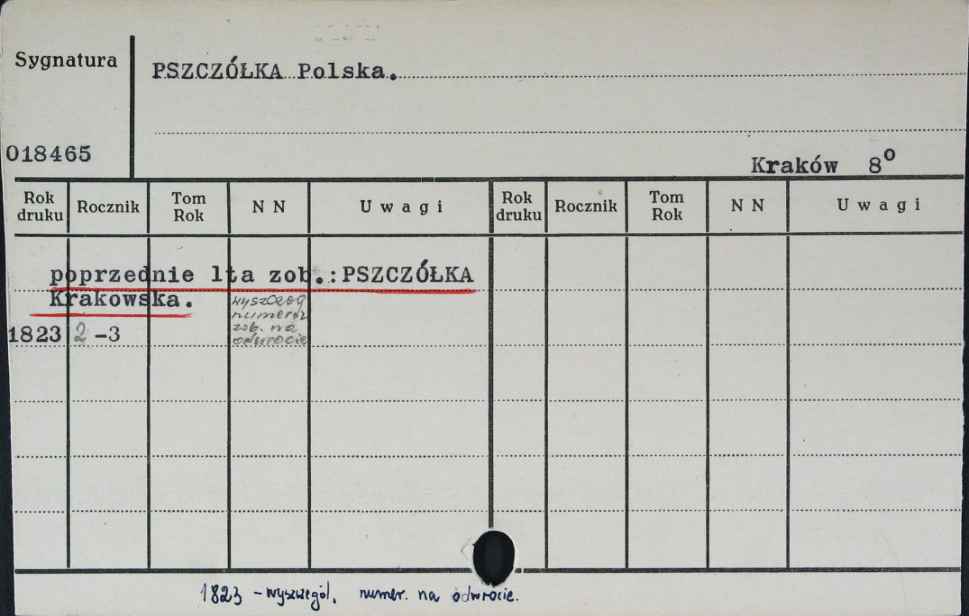 Sygnatura
PSZCZÓŁKA Polska.
018465
Kraków 8°
Rok druku Rocznik Tom Rok N N U w a g i Rok druku Rocznik Tom Rok N N U w a g i
poprzednie lta zob.:PSZCZÓŁKA
Krakowska.
wyszczeg
numerów
zob. na
odwrocie
1823 2-3
1823 - wyszczegól. numer. na odwrocie.